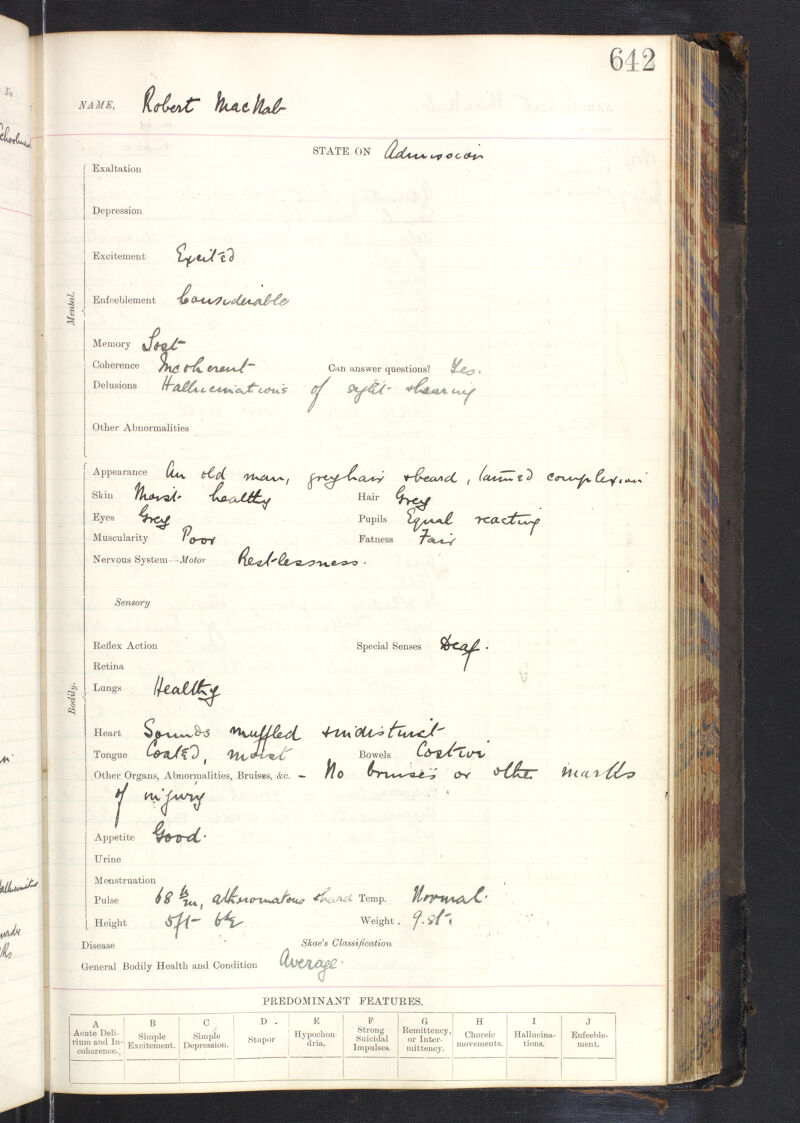 642
No
NAME, Robert MacNab
STATE ON Admission
Mental.
Exaltation
Depression
Excitement Excited
Enfeeblement Considerable
Memory Lost
Coherence Incoherent Can answer questions? Yes.
Delusions Hallucinations of sight & hearing
Other Abnormalities
Bodily.
Appearance An old man, grey hair & beard, tanned complexion
Skin Moist healthy Hair Grey
Eyes Grey Pupils Equal reacting
Muscularity Poor Fatness Fair
Nervous System—Motor Restlessness.
Sensory
Reflex Action Special Senses Deaf.
Retina
Lungs Healthy
Heart Sounds muffled & indistinct
Tongue Coated, moist Bowels Costive
Other Organs, Abnormalities, Bruises, &c. – No bruises or other marks
of injury
Appetite Good.
Urine
Menstruation
Pulse 68, atheromatous & hard Temp. Normal.
Height 5ft 6½ Weight. 9. st.
Disease Skae's Classification
General Bodily Health and Condition Average.
PREDOMINANT FEATURES.
A B C D. E F G H I J
Acute Delirium and Incoherence. Simple Excitement. Simple Depression. Stupor Hypochondria. Strong Suicidal Impulses. Remittency, or Intermittency. Choreic movements. Hallucinations. Enfeeblement.